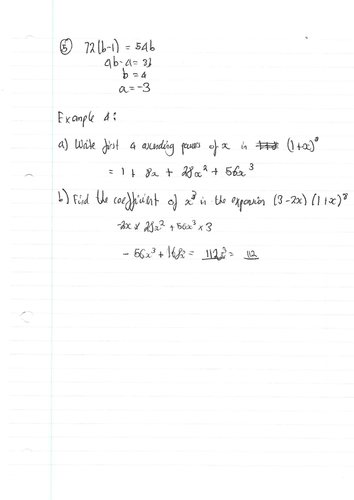 ⑤ 72(b-1) = 54b
4b-a = 22
b = 4
a = -3
Example 4:
a) Write first 4 ascending powers of x in (1+x)⁸
= 1 + 8x + 28x² + 56x³
b) Find the coefficient of x³ in the expansion (3-2x)(1+x)⁸
-2x × 28x² + 56x³ × 3
- 56x³ + 168x³ = 112x³ = 112